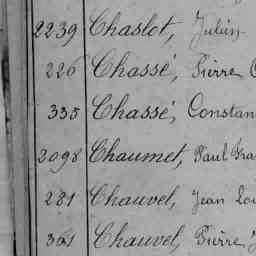 2239 Chaslot, Julien
226 Chassé, Pierre
335 Chassé, Constan
2098 Chaumet, Paul Fra
281 Chauvel, Jean Lou
361 Chauvel, Pierre